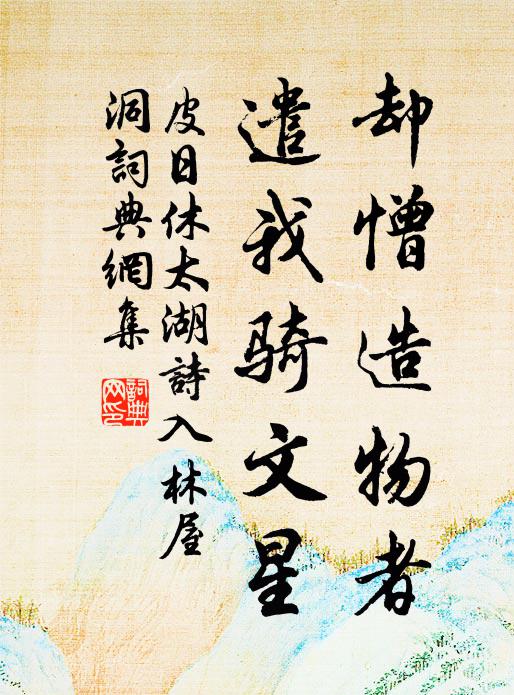 却憎造物者
遣我骑文星
皮日休太湖詩入林屋
洞詞典網集
詞典
网印